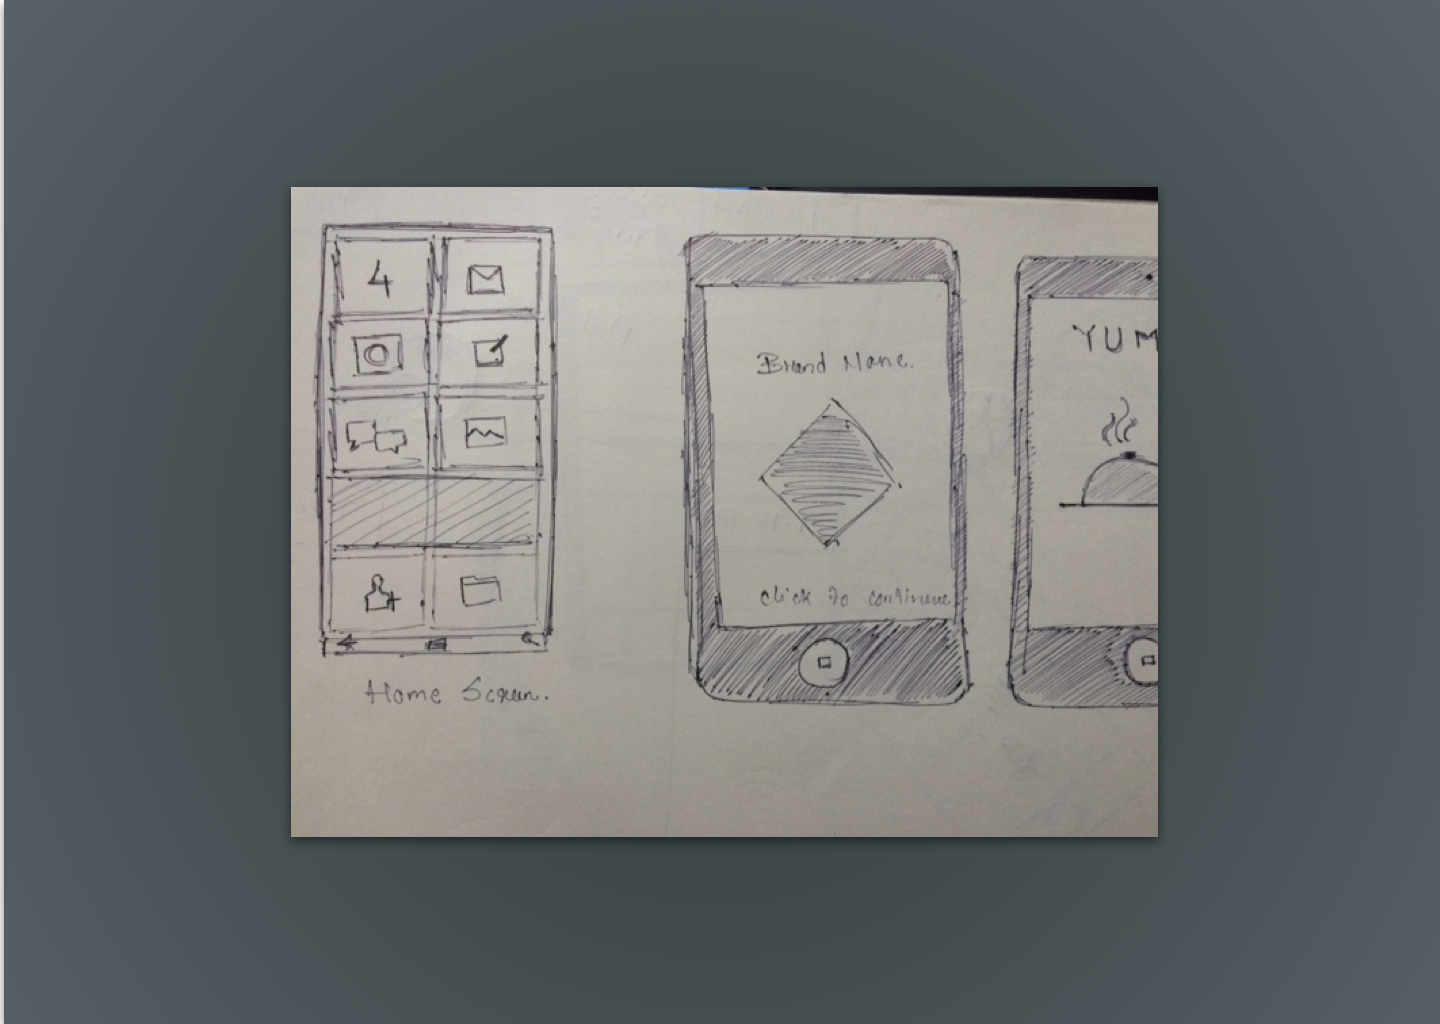 4
Home Screen.
Brand Name.
click to continue
YUM